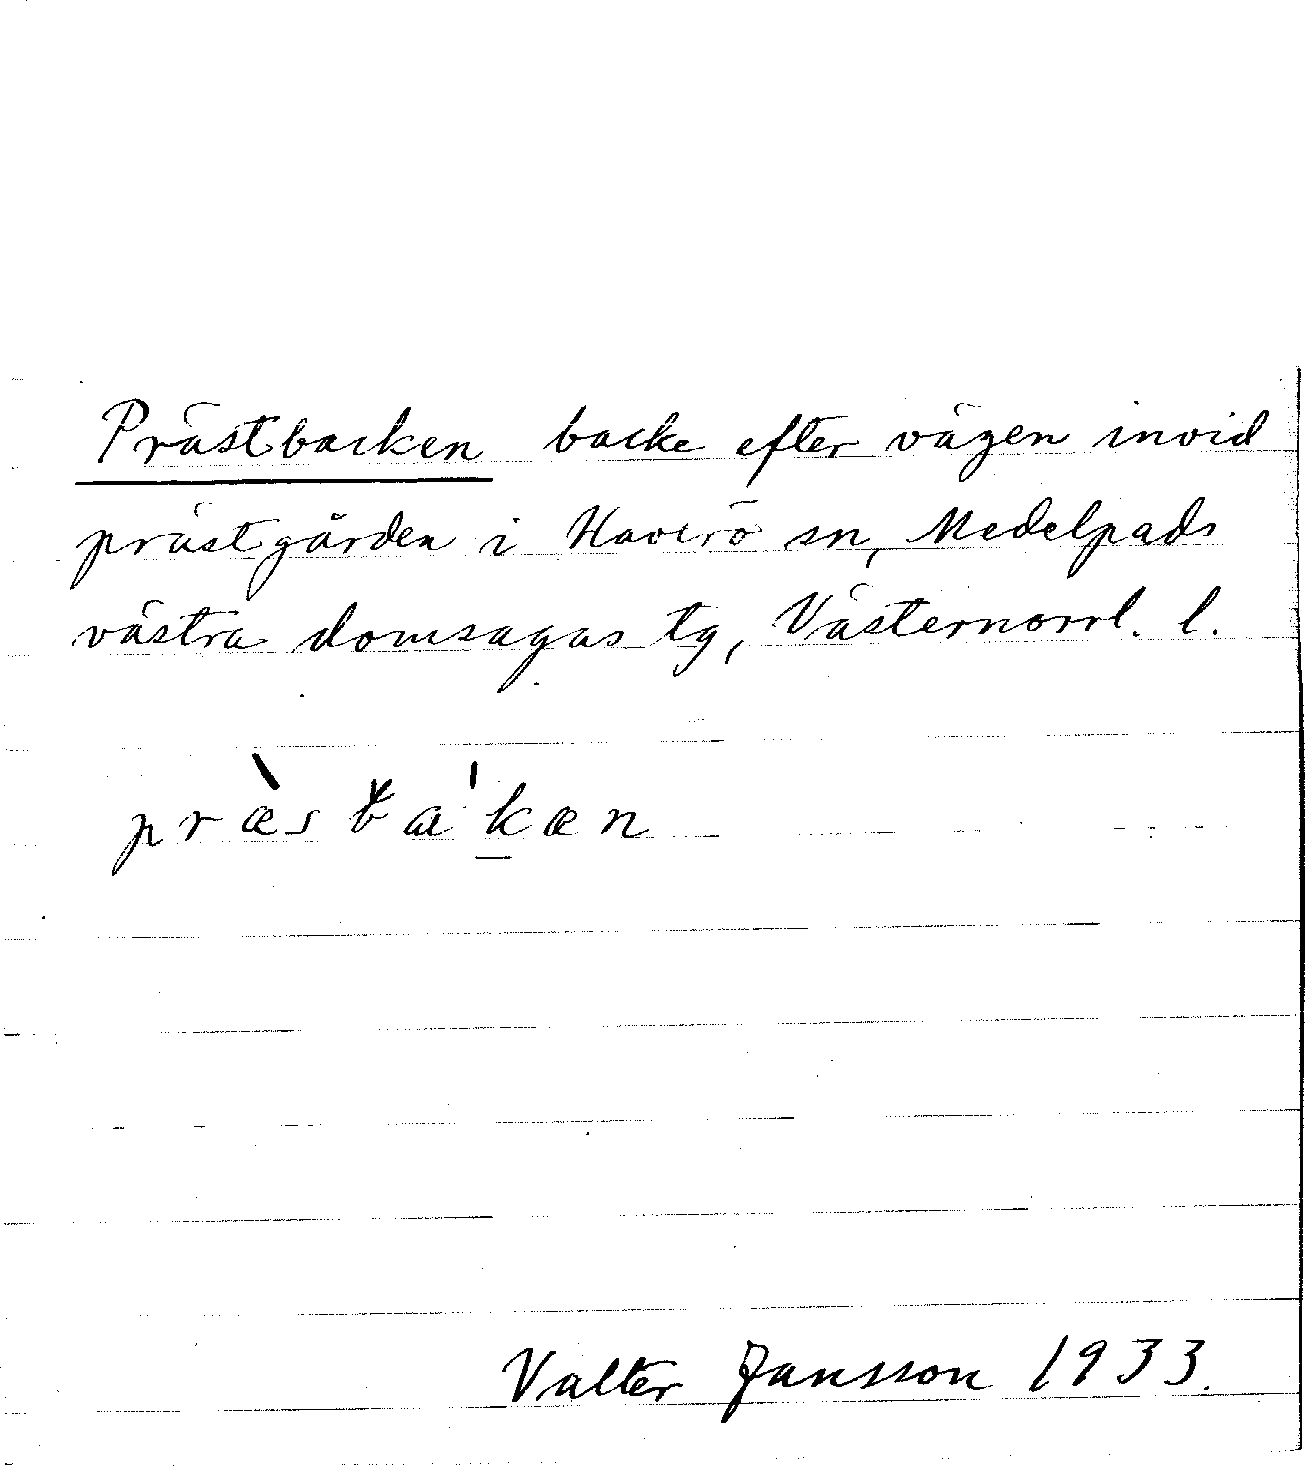 Prästbacken backe efter vägen invid
prästgården i Haverö sn, Medelpads
västra domsagas tg, Västernorrl. l.
Valter Jansson 1933.